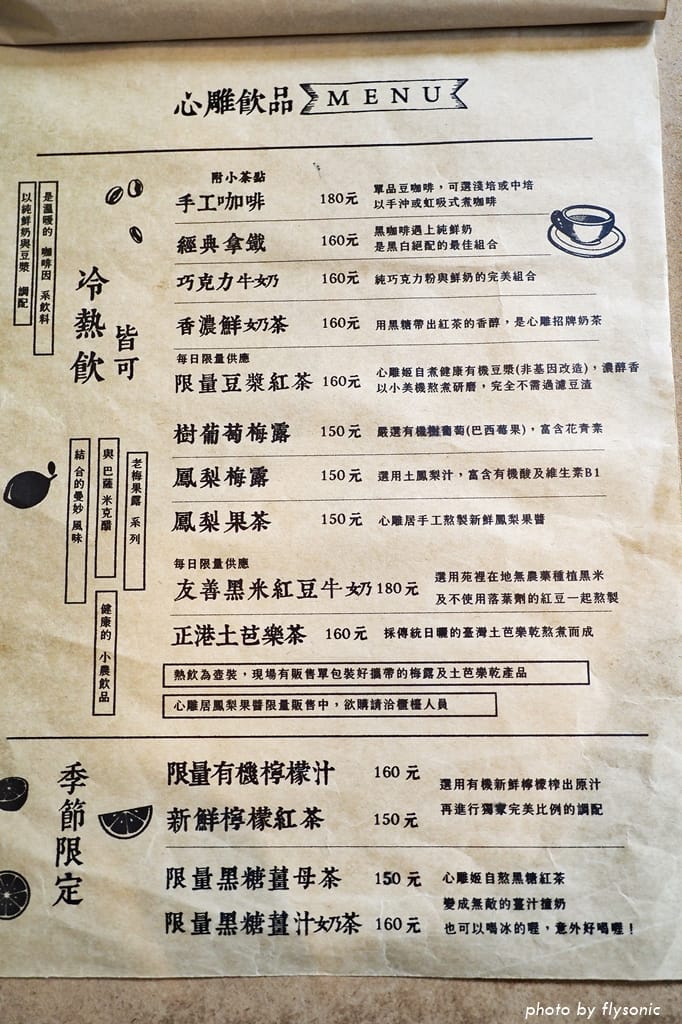 心雕飲品 MENU
是溫暖的 咖啡因 系飲料
以純鮮奶與豆漿 調配
冷熱飲
皆可
附小茶點
手工咖啡 180元 單品豆咖啡，可選淺焙或中焙
以手沖或虹吸式煮咖啡
經典拿鐵 160元 黑咖啡遇上純鮮奶
是黑白絕配的最佳組合
巧克力牛奶 160元 純巧克力粉與鮮奶的完美組合
香濃鮮奶茶 160元 用黑糖帶出紅茶的香醇，是心雕招牌奶茶
每日限量供應
限量豆漿紅茶 160元 心雕姬自煮健康有機豆漿(非基因改造)，濃醇香
以小美機熬煮研磨，完全不需過濾豆渣
老梅果露 系列
與 巴薩米克醋
結合的曼妙風味
樹葡萄梅露 150元 嚴選有機樹葡萄(巴西莓果)，富含花青素
鳳梨梅露 150元 選用土鳳梨汁，富含有機酸及維生素B1
鳳梨果茶 150元 心雕居手工熬製新鮮鳳梨果醬
健康的 小農飲品
每日限量供應
友善黑米紅豆牛奶 180元 選用苑裡在地無農藥種植黑米
及不使用落葉劑的紅豆一起熬製
正港土芭樂茶 160元 採傳統日曬的臺灣土芭樂乾熬煮而成
熱飲為壺裝，現場有販售單包裝好攜帶的梅露及土芭樂乾產品
心雕居鳳梨果醬限量販售中，欲購請洽櫃檯人員
季節限定
限量有機檸檬汁 160元 選用有機新鮮檸檬榨出原汁
新鮮檸檬紅茶 150元 再進行獨家完美比例的調配
限量黑糖薑母茶 150元 心雕姬自熬黑糖紅茶
變成無敵的薑汁撞奶
限量黑糖薑汁奶茶 160元 也可以喝冰的喔，意外好喝喔！
photo by flysonic